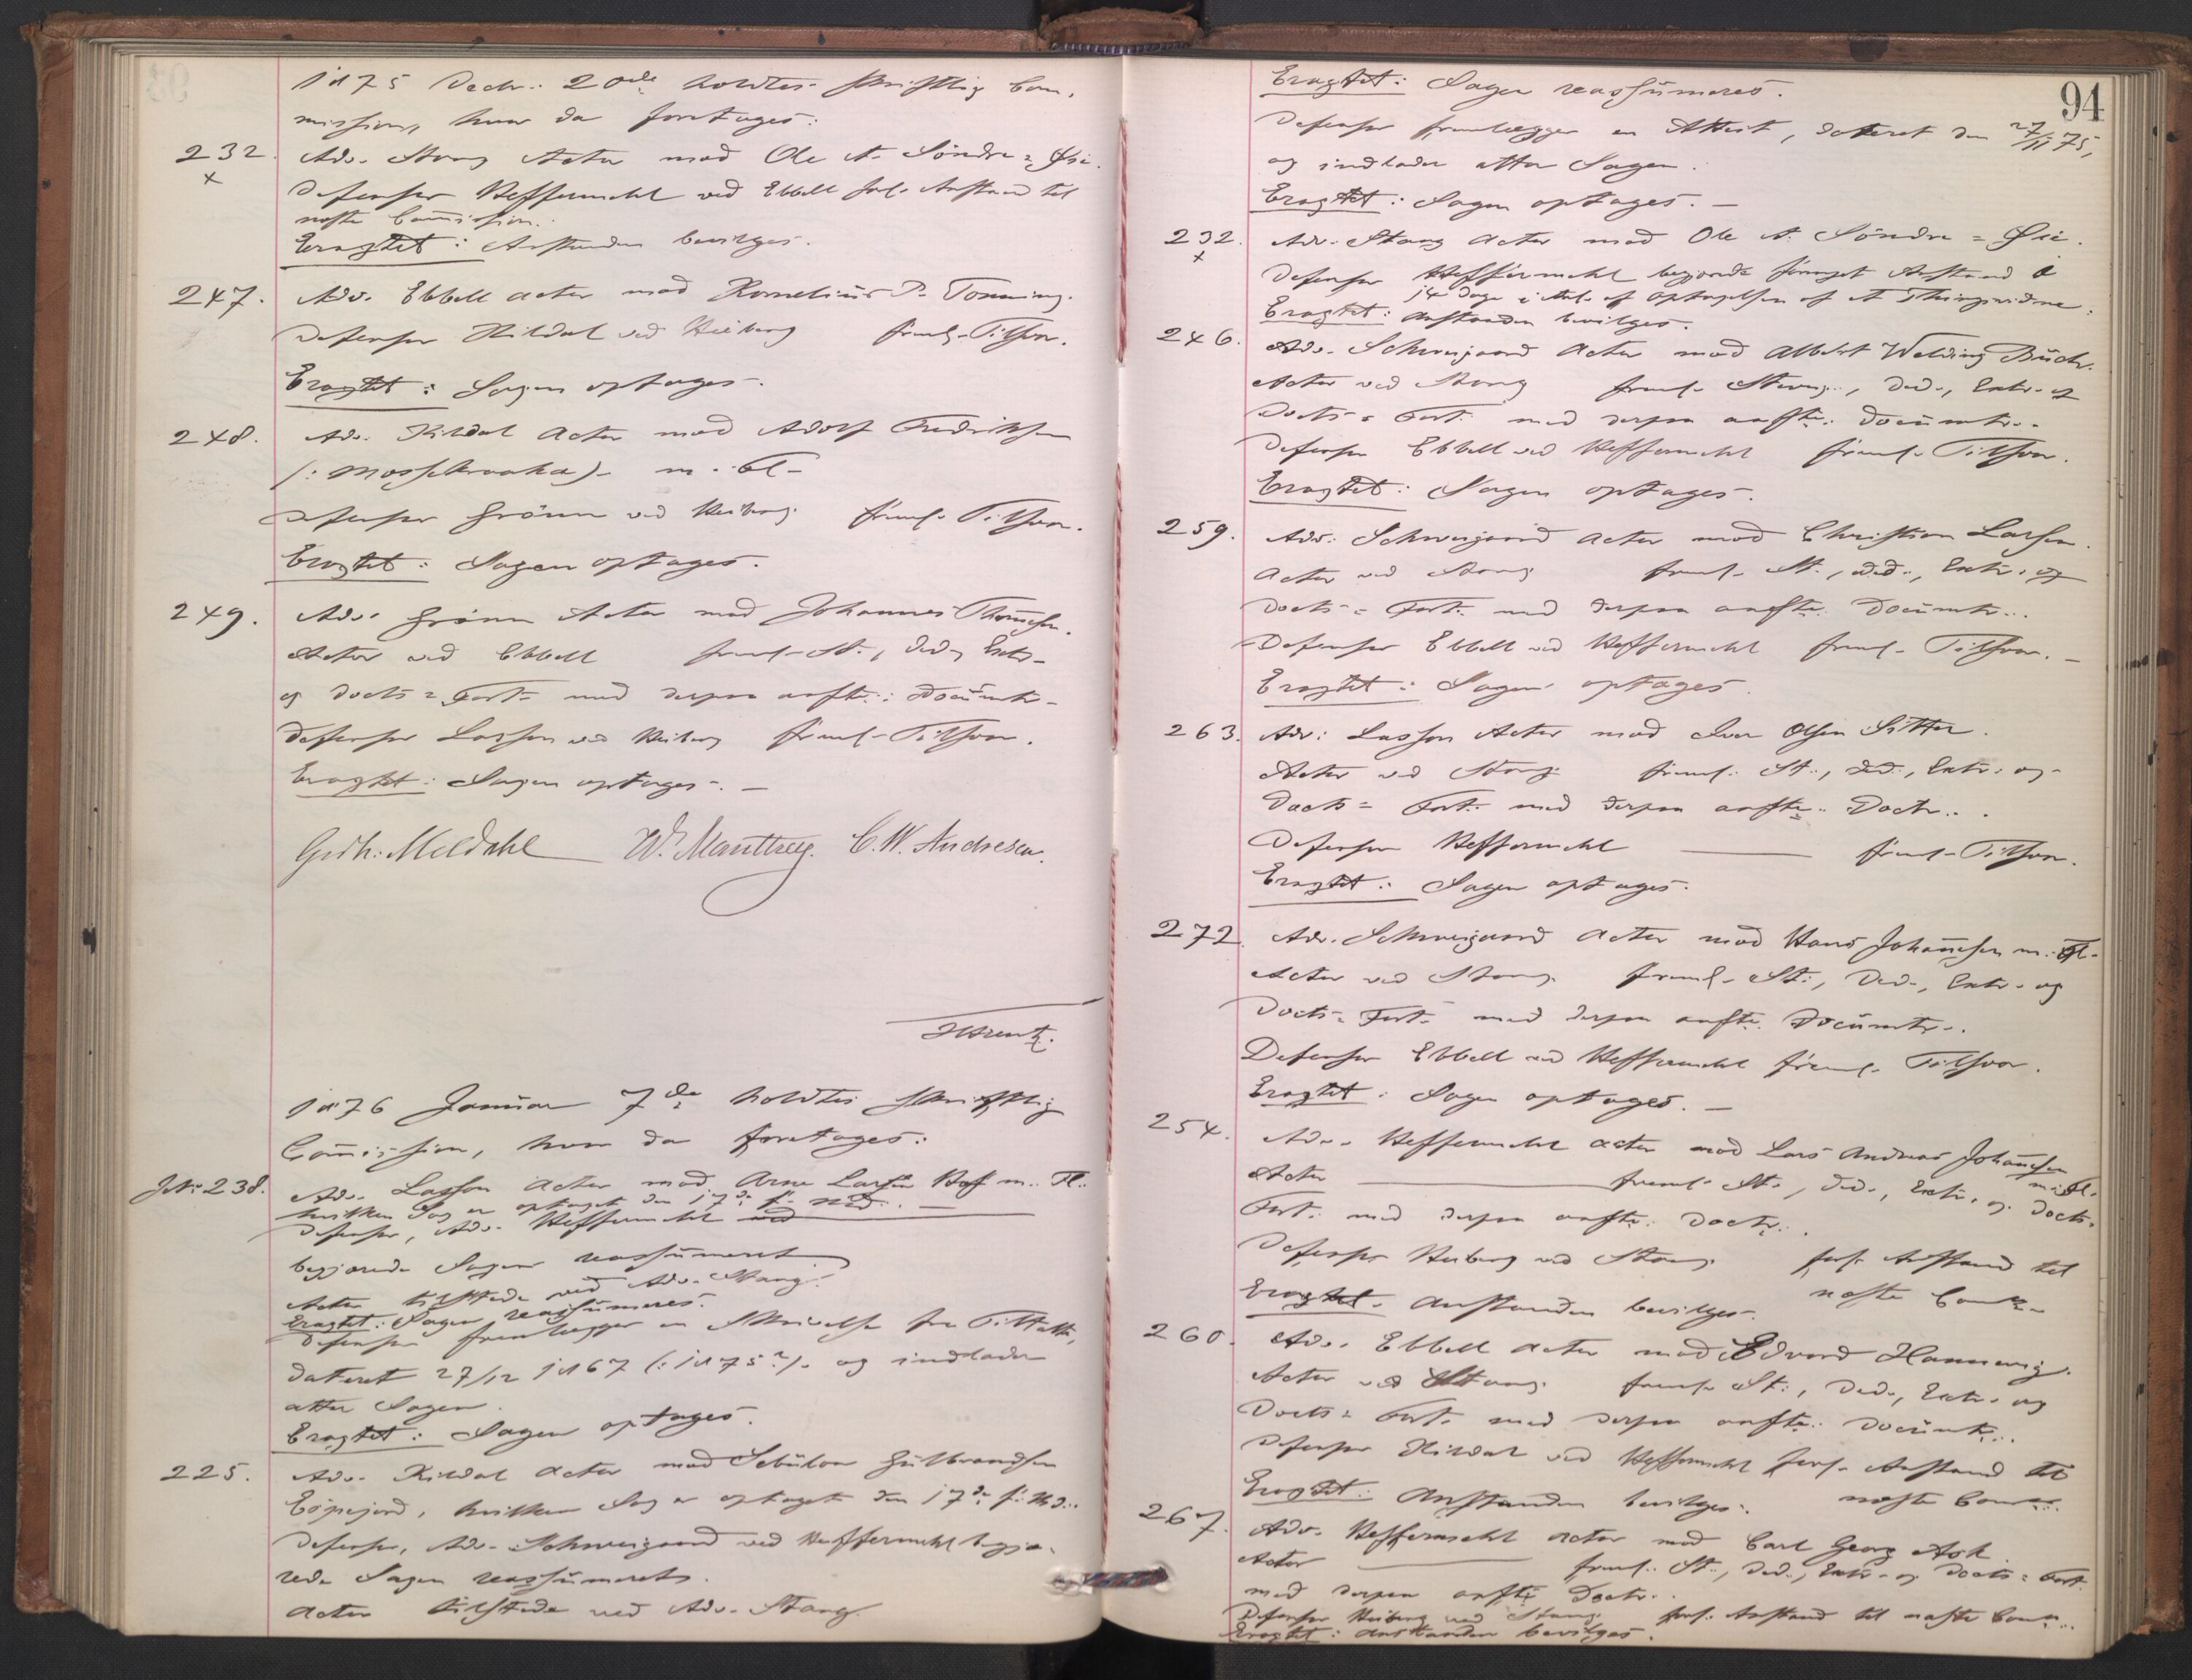 1875 Decbr: 20de holdtes skriftlig Com,
mission, hvor da foretages:
232. Adv. Stang Actor mod Ole A. Söndre=Øie.
x
Defensor Heffermehl ved Ebbell forl. Anstand til
næste Commission.
Eragtet: Anstanden bevilges.
247. Adv. Ebbell Actor mod Kornelius P. Tonning.
Defensor Hildal ved Heiberg freml. Tilsvar.
Eragtet: Sagen optages.
248. Adv. Kildal Actor mod Adolf Fredriksen
(: Mossekraaka) m. Fl.
Defensor Grönn ved Heiberg freml. Tilsvar.
Eragtet: Sagen optages.
249. Adv. Grönn Actor mod Johannes Thomesen.
Actor ved Ebbell freml. St., Ded., Extr.
og Docts=Fort. med derpaa anfte: Documtr.
Defensor Lasson ved Heiberg freml. Tilsvar.
Eragtet: Sagen optages. —
Gedh: Meldahl W. Manthey. C. W. Andresen.
1876 Januar 7de holdtes skriftlig
Commission, hvor da foretages:
No 238. Adv. Lasson Actor mod Arne Larsen m. Fl.
hvilken Sag er optaget den 17de f. Md. —
Defensor, Adv. Heffermehl ved
begjærede Sagen reassumeret
Actor tilstede ved Adv. Stang.
Eragtet: Sagen reassumeres.
Defensor fremlægger en Skrivelse fra Tiltalte,
dateret 27/12 1867 (: 1875?). og indlader
atter Sagen.
Eragtet: Sagen optages.
225. Adv. Kildal Actor mod Sebülon Gülbrandsen
hvilken Sag er optaget den 17de f. Md.
Defensor, Adv. Schweigaard ved Heffermehl begjæ,
rede Sagen reassumeret.
Actor tilstede ved Adv. Stang.
94
Eragtet: Sagen reassumeres.
Defensor fremlægger en Attest, dateret den 27/11 75,
og indlader atter Sagen.
Eragtet: Sagen optages. —
232. Adv. Stang Actor mod Ole A. Söndre=Øie.
x
Defensor Heffermehl begjærede fornyet Anstand i
14 Dage af Optagelsen af et Thingsvidne.
Eragtet: Anstanden bevilges.
246. Adv. Schweigaard Actor mod Albert Welding Büch.
Actor ved Stang freml. Stevng., Ded., Extr. og
Docts=Fort. med derpaa anfte: Documtr.
Defensor Ebbell ved Heffermehl freml. Tilsvar.
Eragtet: Sagen optages.
259. Adv. Schweigaard Actor mod Christian Larsen.
Actor ved Stang freml. St., Ded., Extr. og
Docts=Fort. med derpaa anfte: Documtr.
Defensor Ebbell ved Heffermehl freml. Tilsvar. —
Eragtet: Sagen optages.
263. Adv: Lasson Actor mod Iver Olsen Sitter.
Actor ved Stang freml. St., Ded., Extr. og
Docts=Fort. med derpaa anfte: Doctr.
Defensor Heffermehl — freml. Tilsvar.
Eragtet: Sagen optages.
272. Adv. Schweigaard Actor mod Hans Johannesen m. Fl.
Actor ved Stang freml. St., Ded., Extr. og
Docts=Fort. med derpaa anfte: Documtr.
Defensor Ebbell ved Heffermehl freml. Tilsvar.
Eragtet: Sagen optages. —
254. Adv. Heffermehl Actor mod Lars Andreas Johannesen
m. Fl.
Actor — freml. St., Ded., Extr. og Docts.
Fort. med derpaa anfte: Doctr.
Defensor Heiberg ved Stang forl. Anstand til
næste Comm.
Eragtet: Anstanden bevilges.
260. Adv. Ebbell Actor mod Edvard Hannevig.
Actor ved Stang freml. St., Ded., Extr. og
Docts=Fort. med derpaa anfte: Documtr.
Defensor Hildal ved Heffermehl forl. Anstand til
næste Comm.
Eragtet: Anstanden bevilges.
267. Adv. Heffermehl Actor mod Carl Georg Ask.
Actor — freml. St., Ded., Extr. og Docts=Fort.
med derpaa anfte Doctr.
Defensor Heiberg ved Stang forl. Anstand til næste Comm.
Eragtet: Anstanden bevilges.